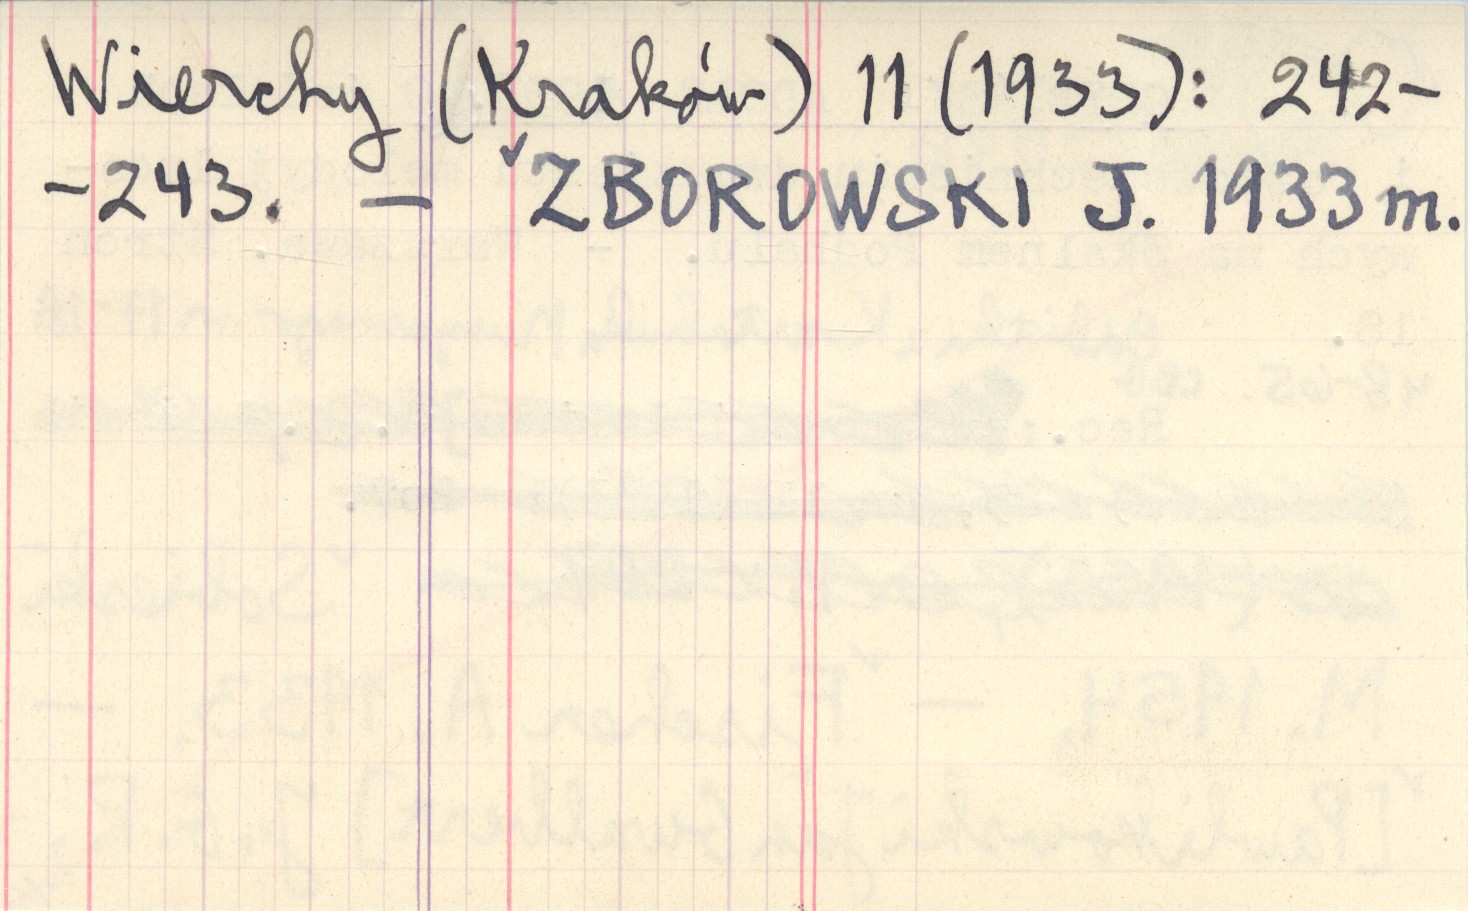 Wierchy (Kraków) 11 (1933): 242-
-243. — ZBOROWSKI J. 1933 m.